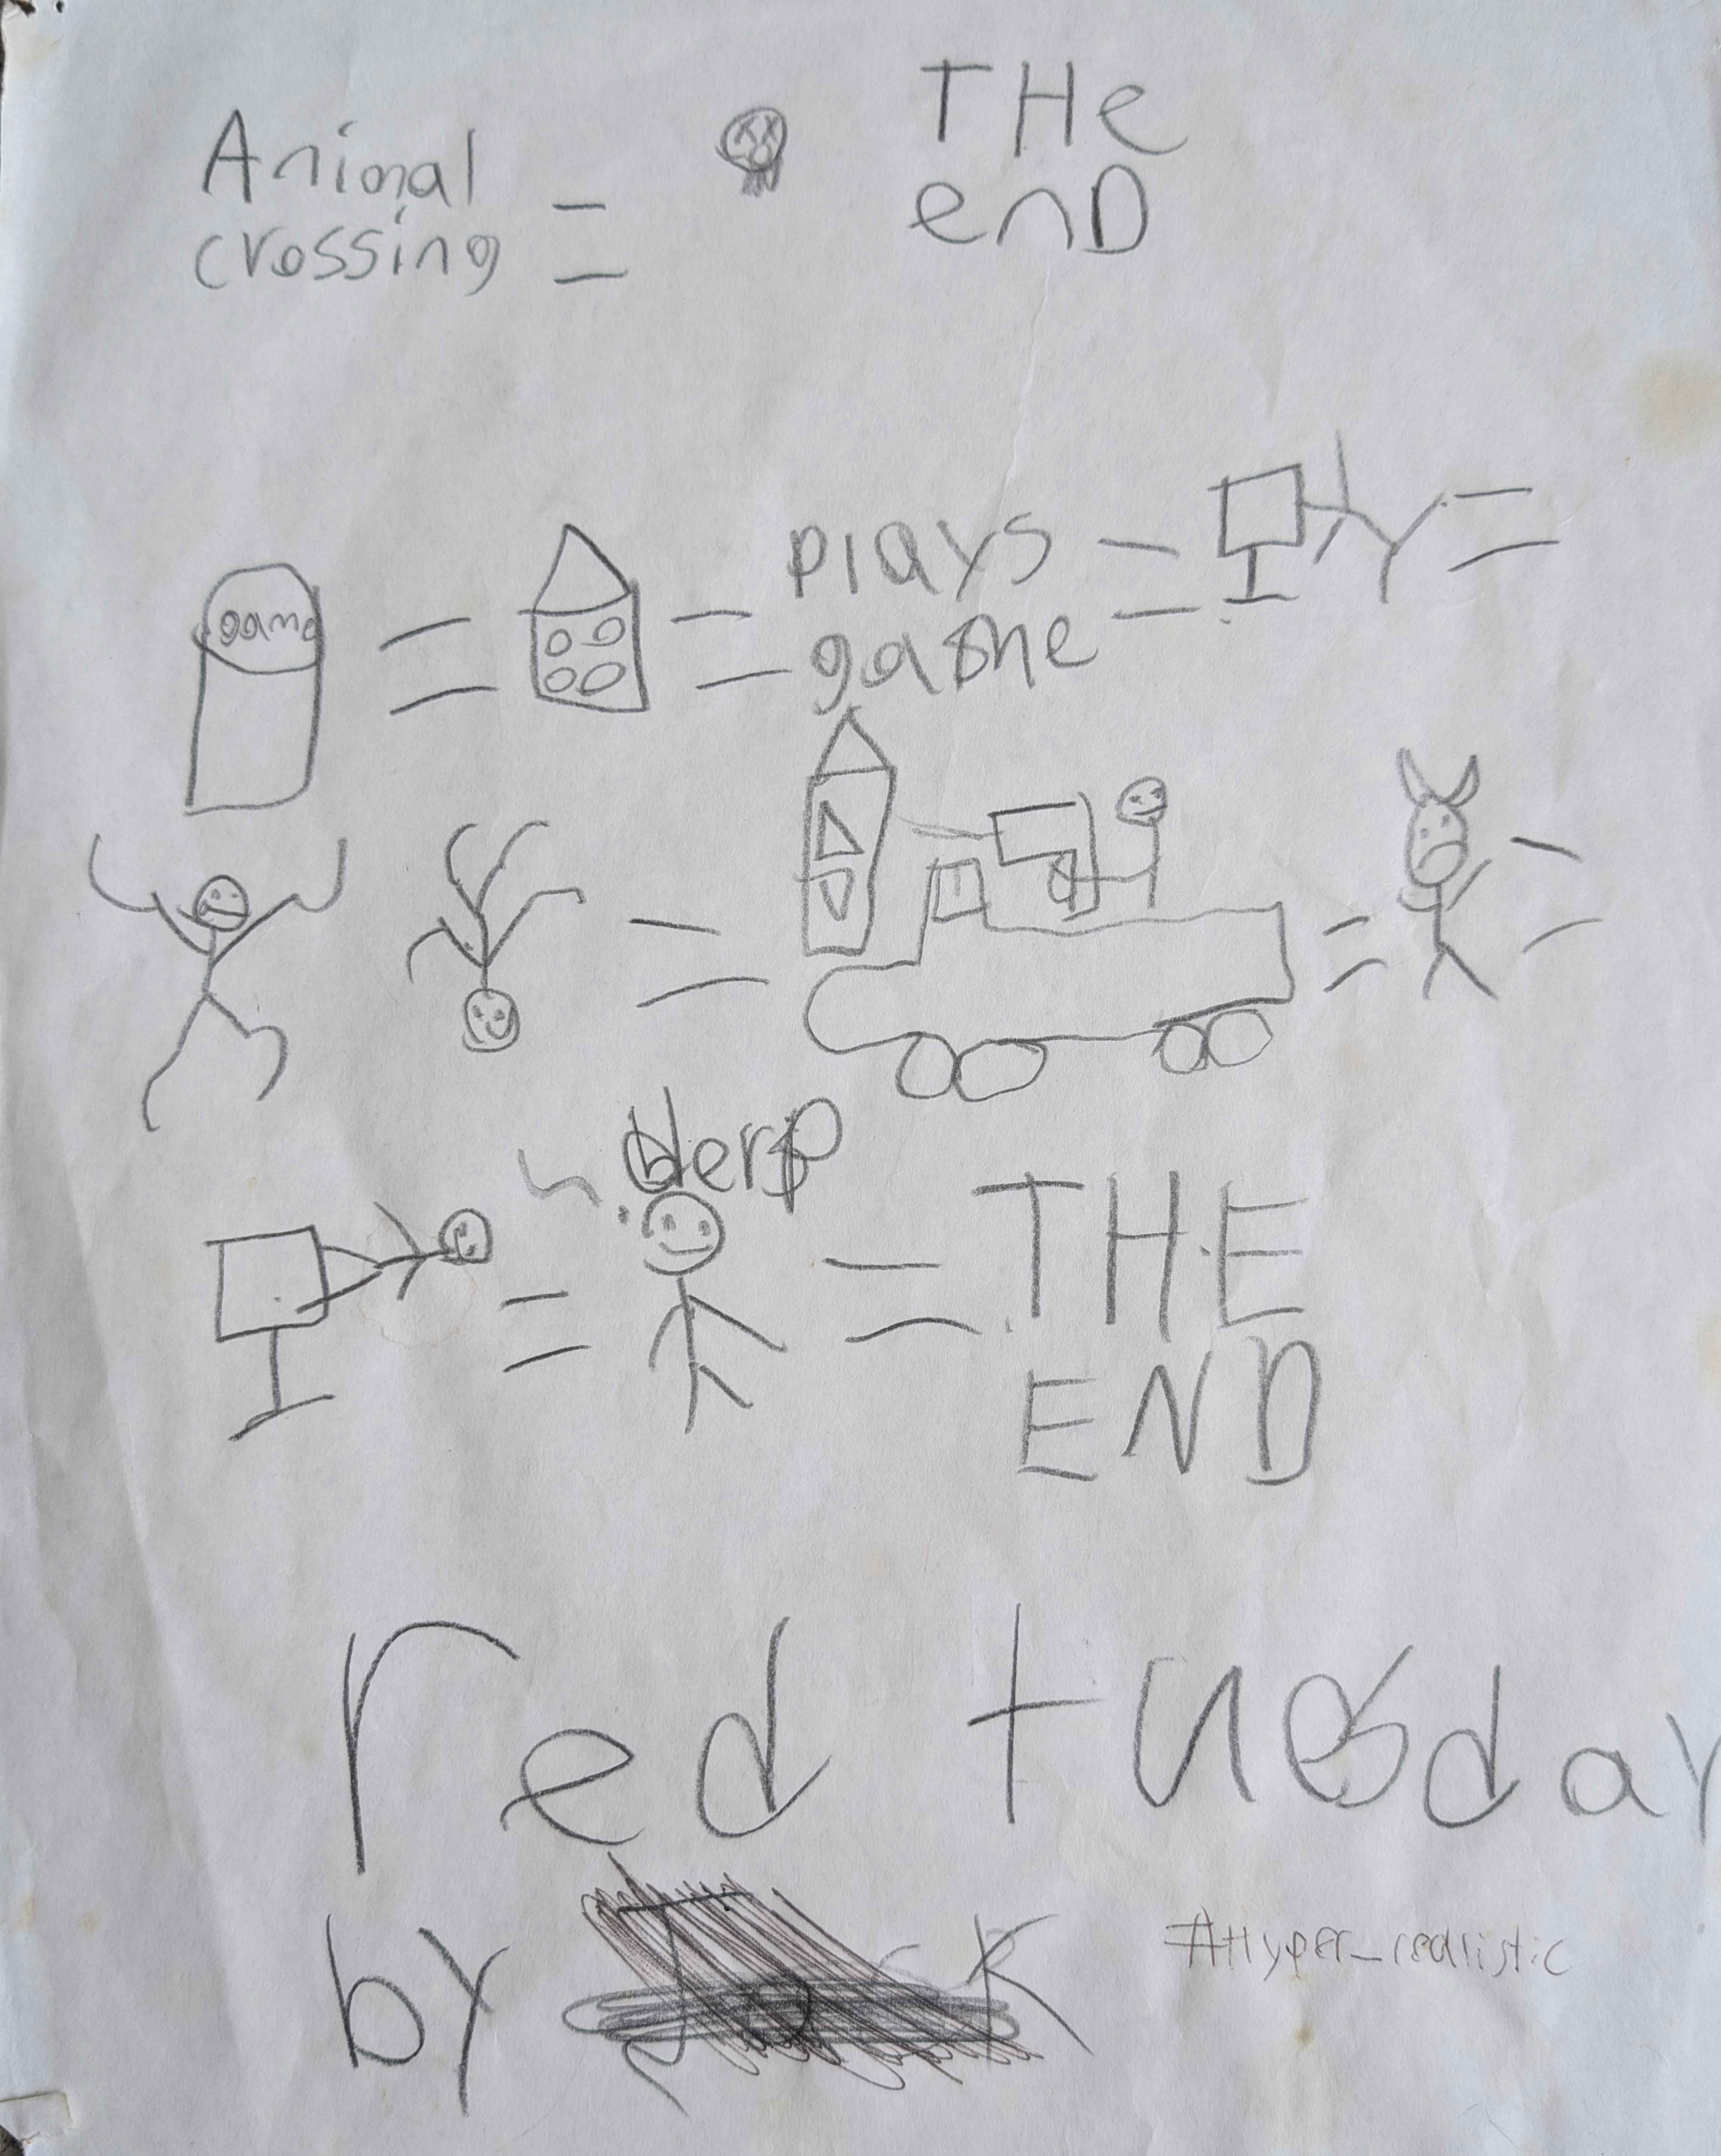 Animal
crossing =
THe
enD
game
=
=
plays
game
=
=
=
=
=
derp
=
=
THE
END
red tuesday
by
#Hyper_realistic